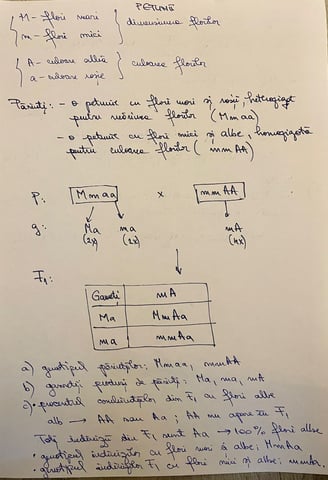 PETUNIA
M - flori mari
m - flori mici
dimensiunea florilor
A - culoare albă
a - culoare roșie
culoarea florilor
Părinți: - o petunie cu flori mari și roșii, heterozigot
pentru mărimea florilor (Mmaa)
- o petunie cu flori mici și albe, homozigotă
pentru culoarea florilor (mmAA)
P: Mmaa x mmAA
g: Ma ma mA
(2x) (2x) (4x)
F1:
Gameți mA
Ma MmAa
ma mmAa
a) genotipul părinților: Mmaa, mmAA
b) gameții produși de părinți: Ma, ma, mA
c) • procentul combinațiilor din F1 cu flori albe
alb → AA sau Aa; AA nu apare în F1
Toți indivizii din F1 sunt Aa → 100% flori albe
• genotipul indivizilor cu flori mari și albe: MmAa
• genotipul indivizilor F1 cu flori mici și albe: mmAa.